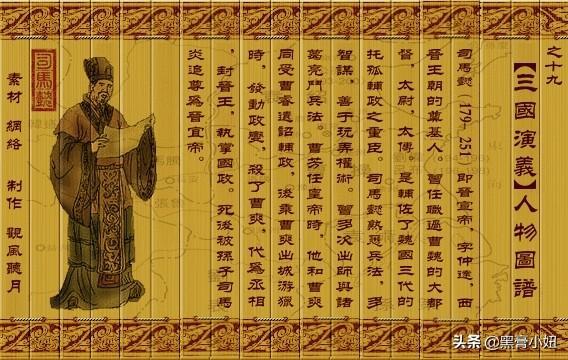 之十九
【三國演義】人物圖譜
司馬懿（179—251）即晉宣帝，字仲達，西
晉王朝的奠基人。曾任職過曹魏的大都
督，太尉，太傅。是輔佐了魏國三代的
托孤輔政之重臣。司馬懿熟悉兵法，多
智謀，善于玩弄權術。曾多次出師與諸
葛亮鬥兵法。曹芳任皇帝時，他和曹爽
同受曹睿遺詔輔政，後乘曹爽出城游獵
時，發動政變，殺了曹爽，代爲丞相
，封晉王，執掌國政。死後被孫子司馬
炎追尊爲晉宣帝。
司馬懿
素材 網絡 制作 觀風聽月
头条 @黑骨小妞